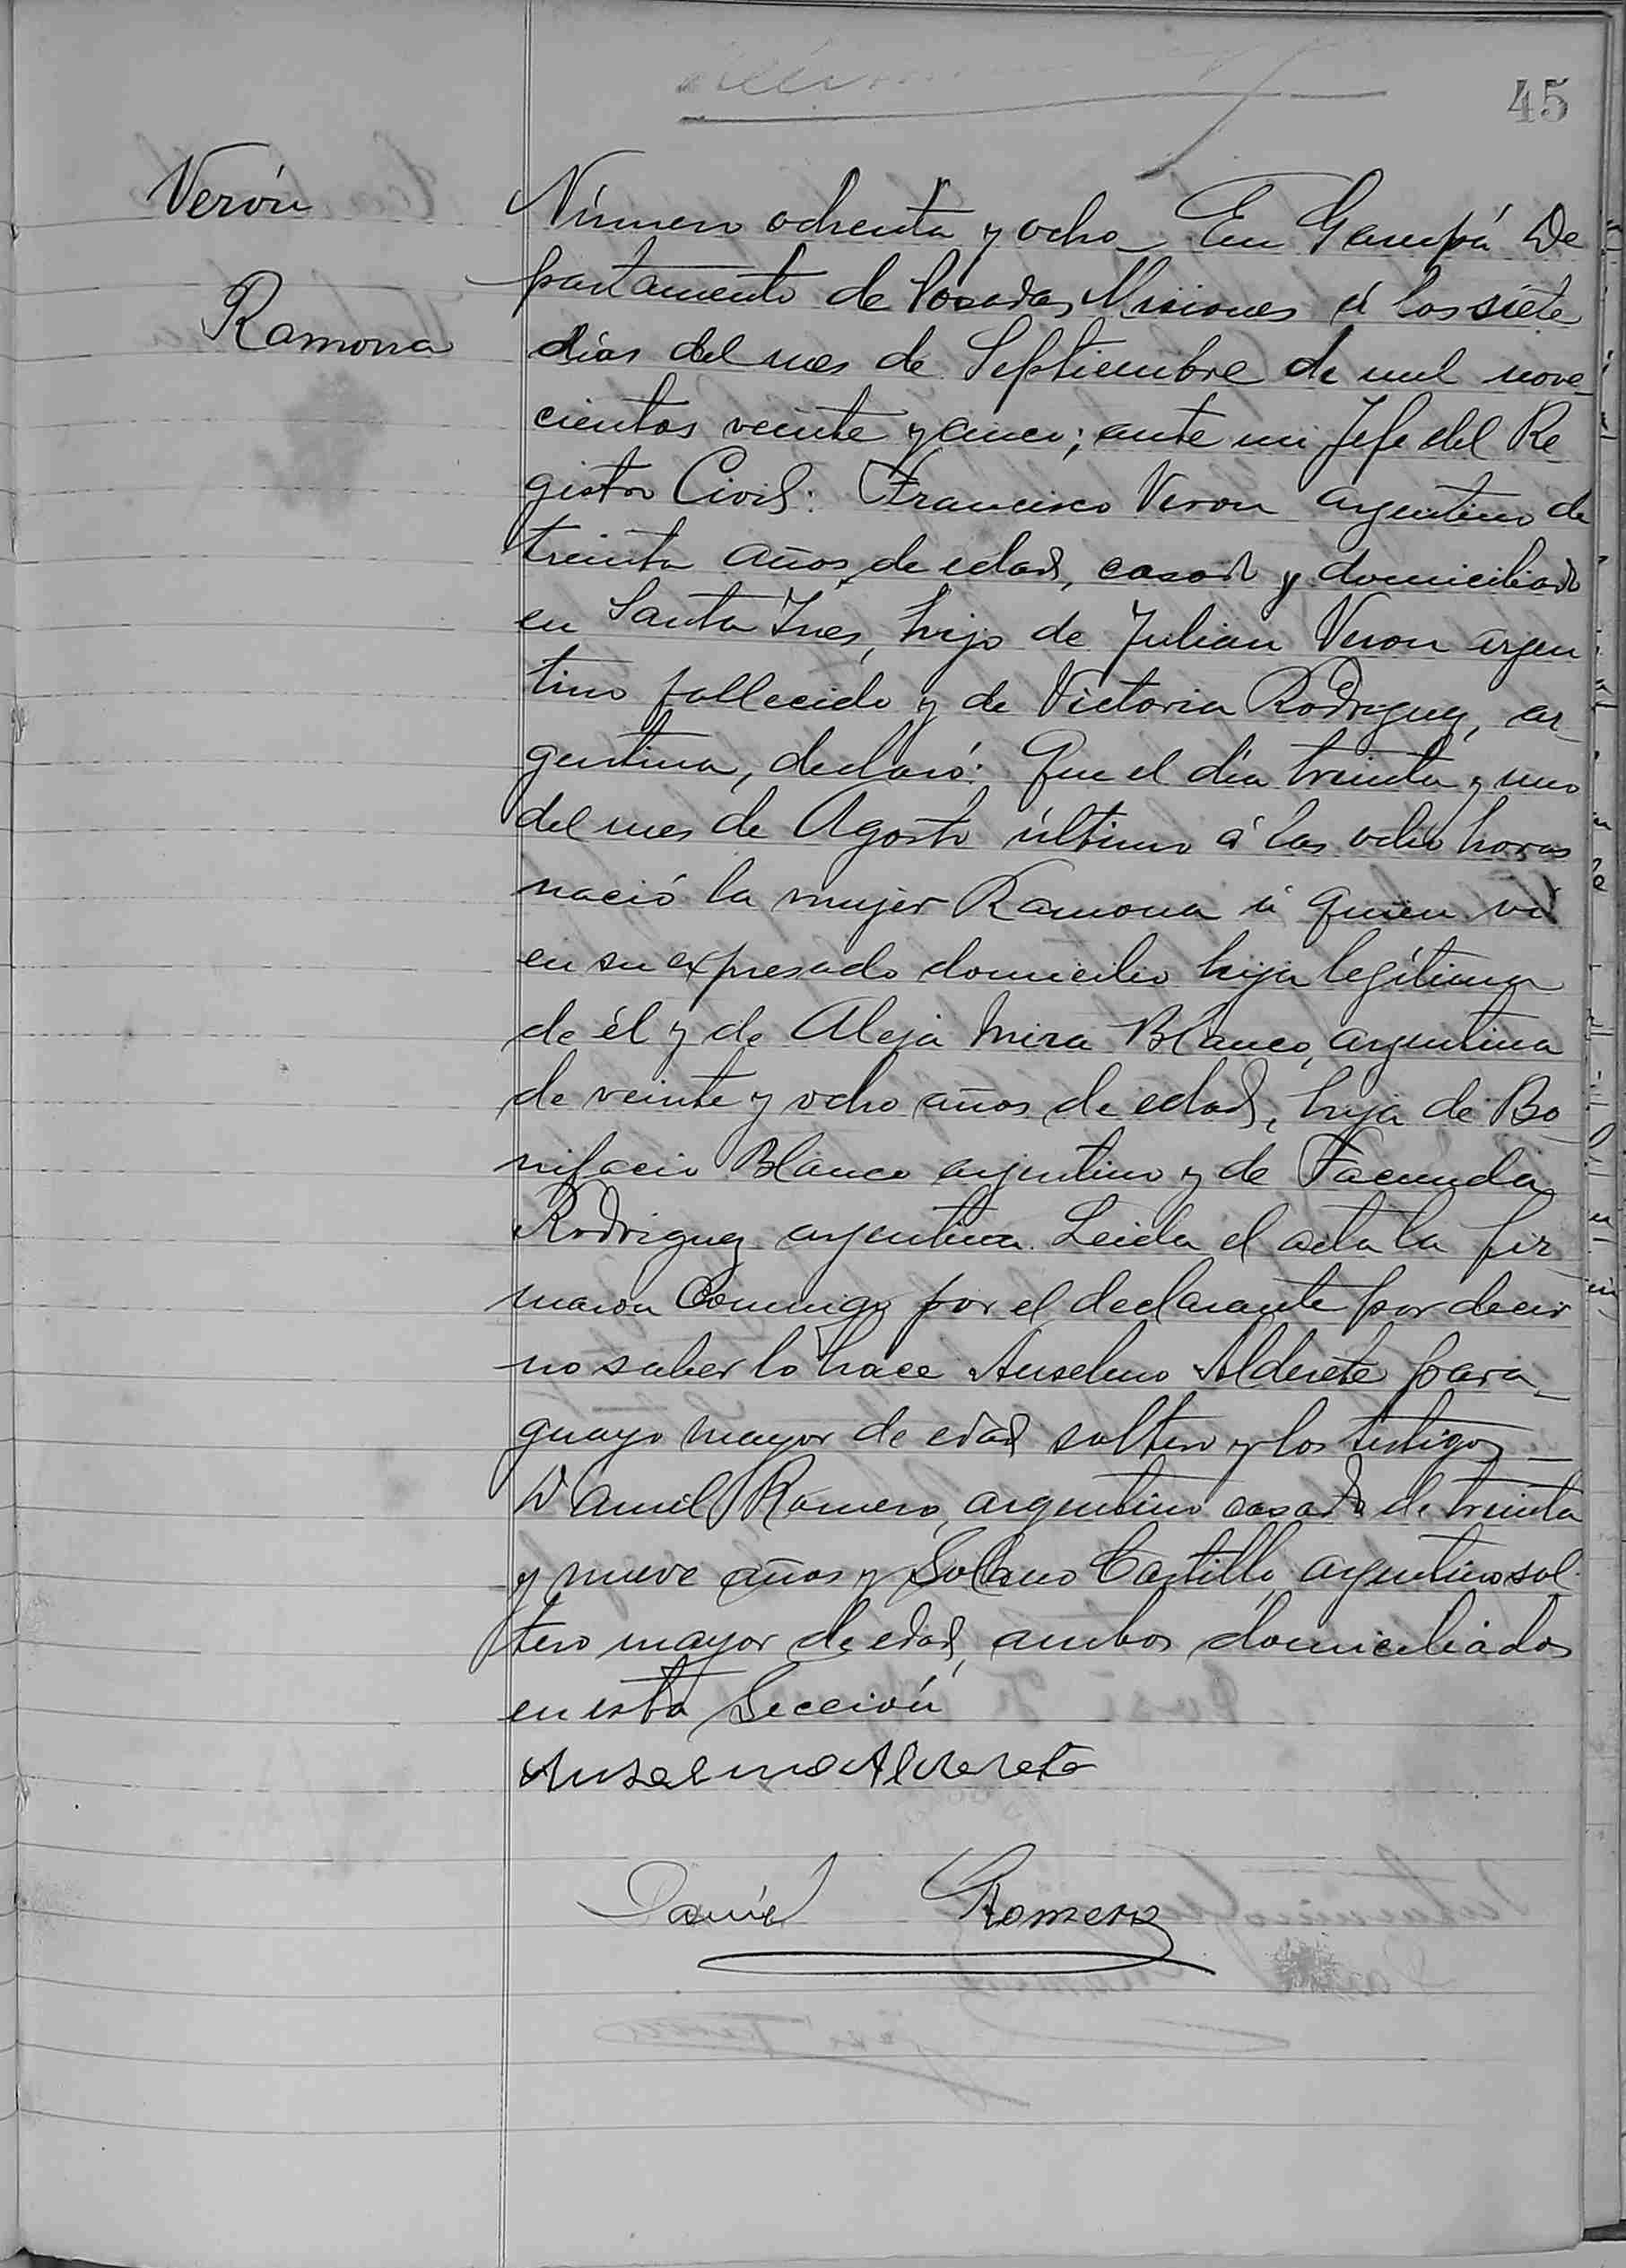 45
Verón
Ramona
Número ochenta y ocho En Garupá De
partamento de Posadas Misiones á los siete
días del mes de Septiembre de mil nove
cientos veinte y cinco; ante mi Jefe del Re
gistro Civil: Francisco Veron argentino de
treinta años de edad, casado y domiciliado
en Santa Inés, hijo de Julian Veron argen
tino fallecido y de Victoria Rodriguez, ar
gentina, declaró: Que el día treinta y uno
del mes de Agosto último á las ocho horas
nació la mujer Ramona á quien vi
en su expresado domicilio hija legítima
de él y de Aleja Mira Blanco, argentina
de veinte y ocho años de edad, hija de Bo
nifacio Blanco argentino y de Facunda
Rodriguez argentina. Leida el acta la fir
maron conmigo por el declarante por decir
no saber lo hace Anselmo Alderete para
guayo mayor de edad soltero y los testigos
Daniel Romero, argentino casado de treinta
y nueve años y Solano Castillo, argentino sol
tero mayor de edad, ambos domiciliados
en esta Sección
Anselmo Alderete
Daniel Romero